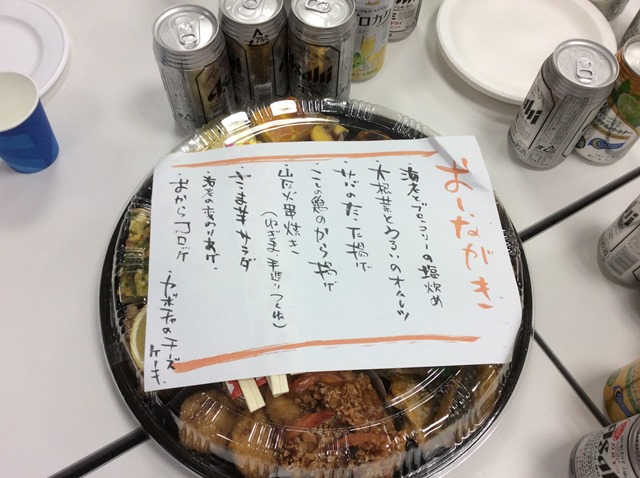 おしながき
・海老とブロッコリーの塩炒め
・大根葉としらいのオムレツ
・サバのたつた揚げ
・こしの鶏のから揚げ
・山灰火田焼き
(ねぎま・手造りつくね)
・さつま芋サラダ
・海老の変わりあげ
・おからコロッケ
・カボチャのチーズケーキ
Asahi
Asahi
Asahi